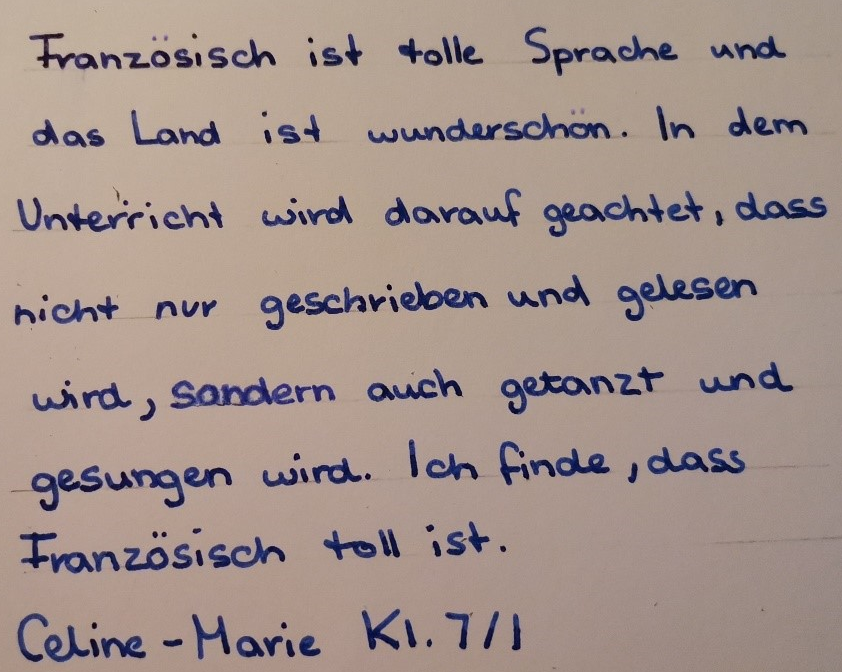 Französisch ist tolle Sprache und
das Land ist wunderschön. In dem
Unterricht wird darauf geachtet, dass
nicht nur geschrieben und gelesen
wird, sondern auch getanzt und
gesungen wird. Ich finde, dass
Französisch toll ist.
Celine-Marie Kl. 7/1